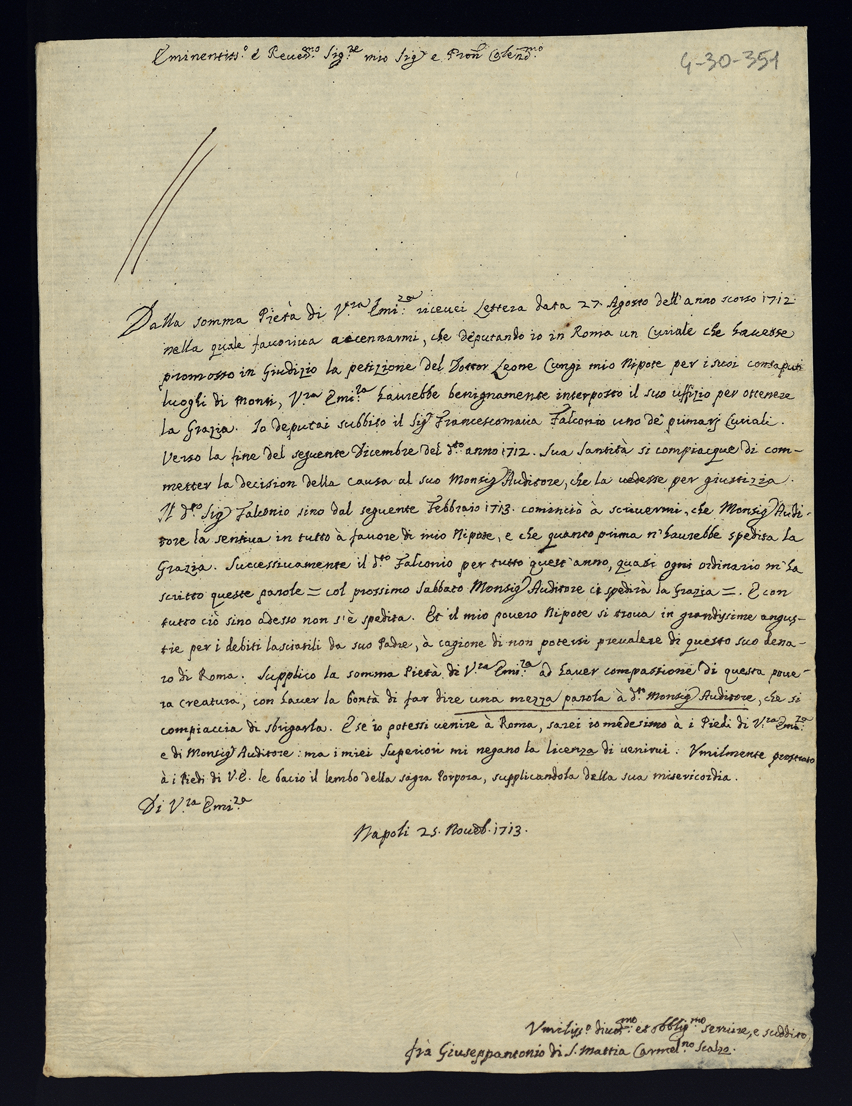 Eminentiss.º è Reued.mo Sig.re mio Sig.r e Pron Colend.mo
4-30-351
Dalla somma Pietà di V.ra Emi.za riceuei Lettera data 27. Agosto dell'anno scorso 1712
nella quale fauoriua accennarmi, che deputando io in Roma un Curiale che hauesse
promosso in Giudizio la petizione del Dottor Leone Cungi mio Nipote per i suoi consaputi
luoghi di Monti, V.ra Emi.za haurebbe benignamente interposto il suo uffizio per ottenere
la Grazia. Io deputai subbito il Sig.r Francescomaria Falconio uno de' primarj Curiali.
Verso la fine del seguente Dicembre del d.to anno 1712. Sua Santità si compiacque di com-
metter la decision della causa al suo Monsig.r Auditore, che la uedesse per giustizia.
Il d.to Sig.r Falconio sino dal seguente Febbraio 1713. cominciò à scriuermi, che Monsig.r Audi-
tore la sentiua in tutto à fauore di mio Nipote, e che quanto prima n'haurebbe spedita la
Grazia. Successiuamente il d.to Falconio per tutto quest'anno, quasi ogni ordinario m'ha
scritto queste parole = col prossimo Sabbato Monsig.r Auditore ci spedirà la Grazia =. E con
tutto ciò sino adesso non s'è spedita. Et il mio pouero Nipote si troua in grandissime angus-
tie per i debiti lasciatili da suo Padre, à cagione di non potersi preualere di questo suo dena-
ro di Roma. Supplico la somma Pietà di V.ra Emi.za ad hauer compassione di questa poue-
ra creatura, con hauer la bontà di far dire una mezza parola à d.to Monsig.r Auditore, che si
compiaccia di sbrigarla. E se io potessi uenire à Roma, sarei io medesimo à i Piedi di V.ra Emi.za
e di Monsig.r Auditore: ma i miei Superiori mi negano la licenza di uenirui. Vmilmente prostrato
à i Piedi di V.E. le bacio il lembo della sagra Porpora, supplicandola della sua misericordia.
Di V.ra Emi.za
Napoli 25. Noueb. 1713.
Vmiliss.º diuot.mo et obblig.mo seruire, e suddito
frà Giuseppantonio di S. Mattia Carmel.no Scalzo.